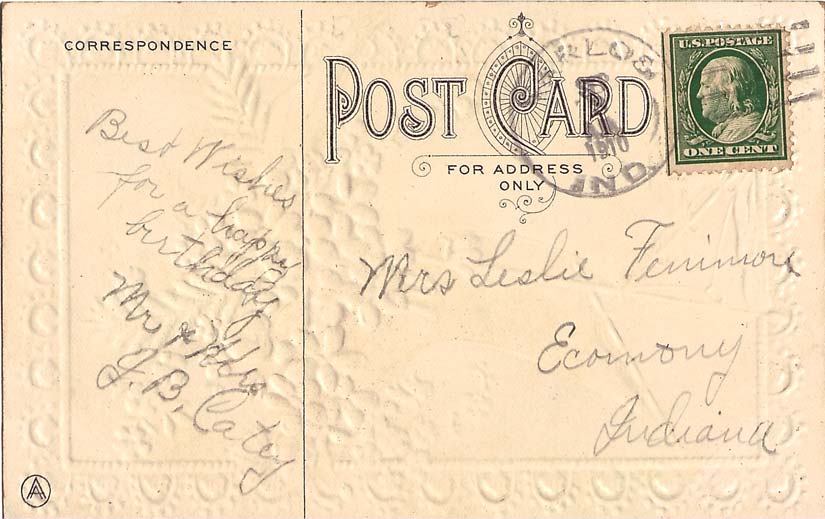 CORRESPONDENCE
POST CARD
FOR ADDRESS
ONLY
U.S. POSTAGE
ONE CENT
1910
IND.
Best Wishes
for a happy
birthday
Mr & Mrs
J. B. Catey
Mrs Leslie Fenimore
Economy
Indiana
A